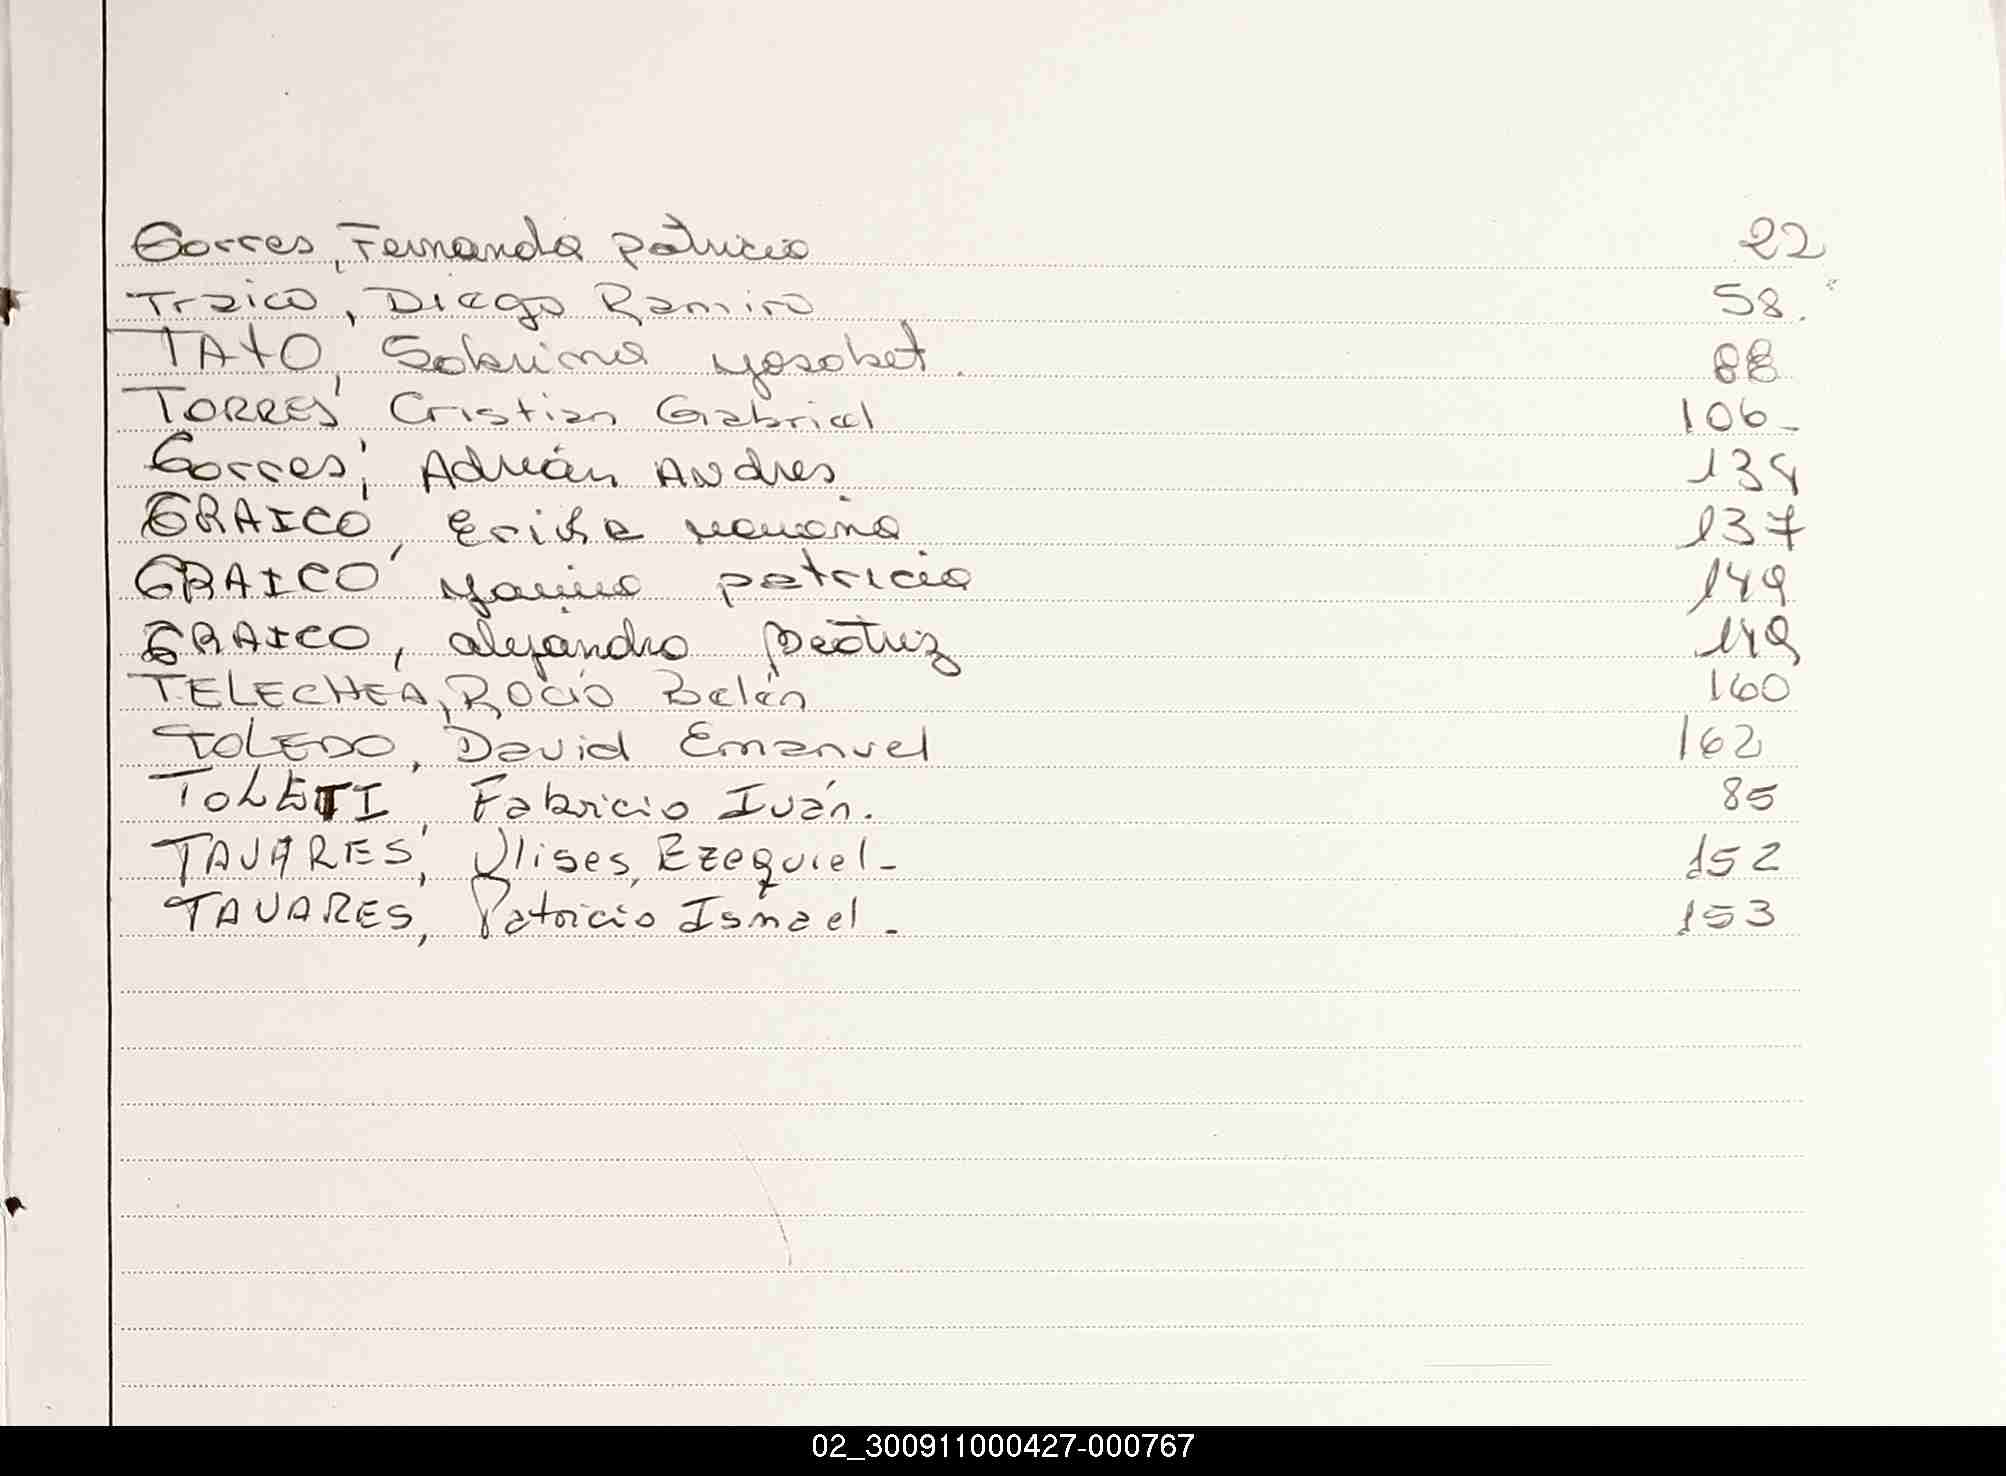 Torres, Fernanda Patricia 22
Traico, Diego Ramiro 58.
TATO, Sabrina Yosobet. 88
TORRES, Cristian Gabriel 106-
Torres, Adrián Andres 134
TRAICO, Erika 137
TRAICO, Yanina patricia 149
TRAICO, alejandra Beatriz 149
TELECHEA, Rocío Belén 160
TOLEDO, David Emanuel 162
TOLETTI, Fabricio Iván. 85
TAVARES, Ulises, Ezequiel- 152
TAVARES, Patricio Ismael.- 153
02_300911000427-000767